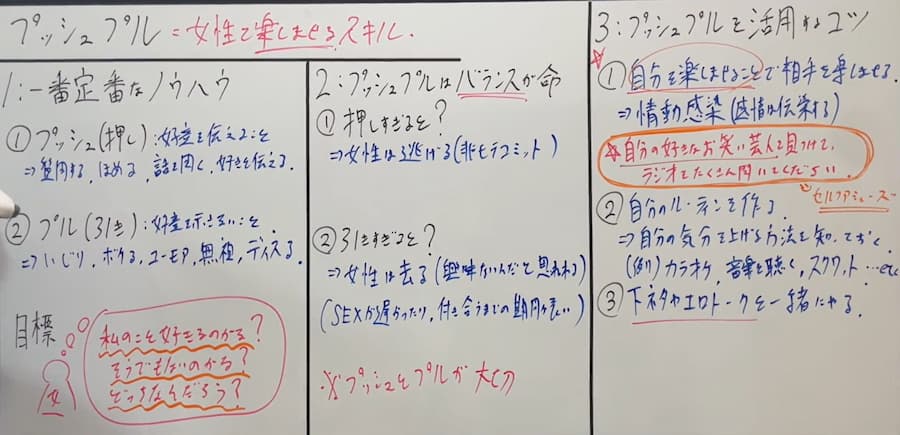 プッシュプル=女性で楽しませるスキル.
1:一番定番なノウハウ
①プッシュ(押し):好意を伝えること
⇒質問する,ほめる,話を聞く,好きを伝える.
②プル(引き):好意を示さないこと
⇒いじり,ボケる,ユーモア,無視,ディスる.
目標
私のこと好きなのかな?
そうでもないのかな?
どっちなんだろう?
女
2:プッシュプルはバランスが命
①押しすぎると?
⇒女性は逃げる(非モテコミット)
②引きすぎると?
⇒女性は去る(興味ないんだと思われる)
(SEXが遅かったり,付き合うまでの期間が長い)
※プッシュとプルが大切
3:プッシュプルを活用するコツ
①自分を楽しませることで相手を楽しませる.
⇒情動感染(感情は伝染する)
☆自分の好きなお笑い芸人を見つけて,
ラジオでたくさん聞いてください.
セルフアミューズ
②自分のルーティンを作る.
⇒自分の気分を上げる方法を知っておく.
(例)カラオケ,音楽を聴く,スクワット…etc
③下ネタやエロトークを一緒にやる.